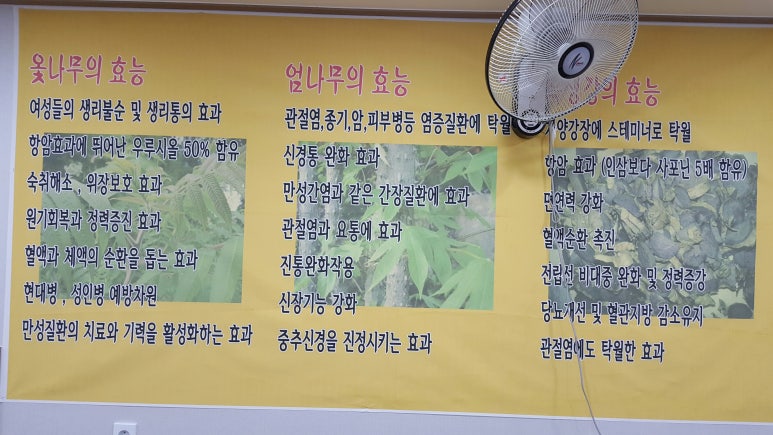 옻나무의 효능
여성들의 생리불순 및 생리통의 효과
항암효과에 뛰어난 우루시올 50% 함유
숙취해소 , 위장보호 효과
원기회복과 정력증진 효과
혈액과 체액의 순환을 돕는 효과
현대병 , 성인병 예방차원
만성질환의 치료와 기력을 활성화하는 효과
엄나무의 효능
관절염,종기,암,피부병등 염증질환에 탁월
신경통 완화 효과
만성간염과 같은 간장질환에 효과
관절염과 요통에 효과
진통완화작용
신장기능 강화
중추신경을 진정시키는 효과
효능
스테미너로 탁월
항암 효과 (인삼보다 사포닌 5배 함유)
면연력 강화
혈액순환 촉진
전립선 비대증 완화 및 정력증강
당뇨개선 및 혈관지방 감소유지
관절염에도 탁월한 효과